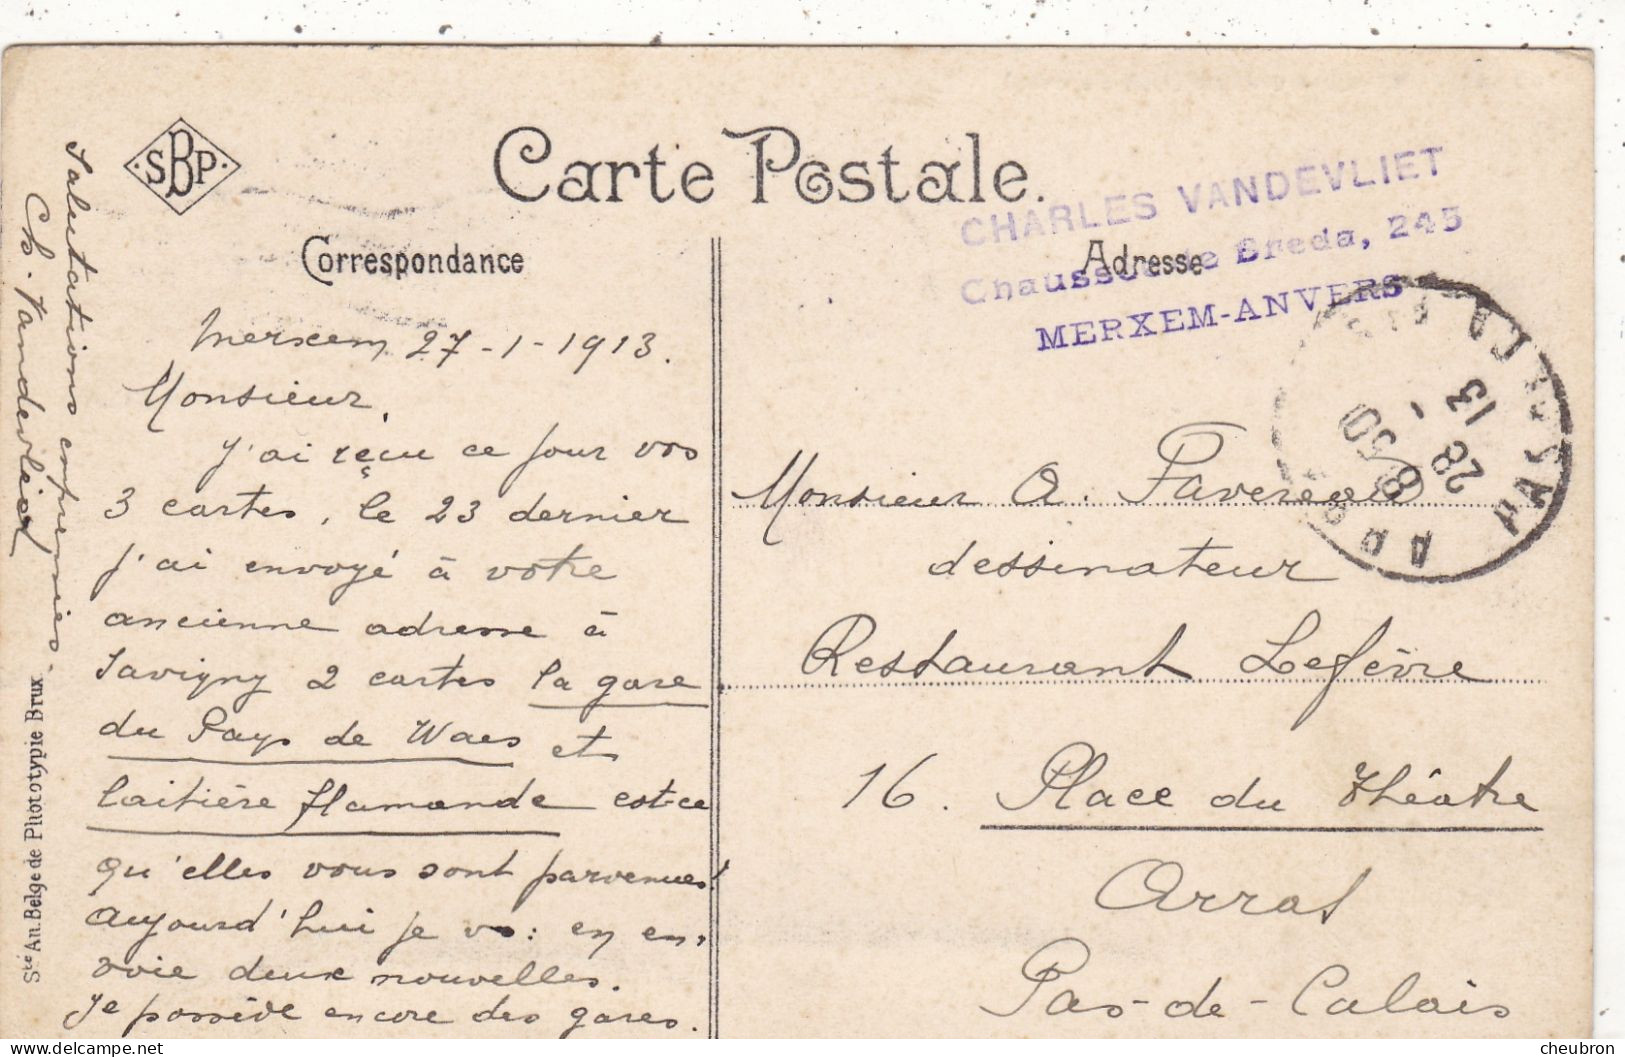 SBP
Carte Postale.
CHARLES VANDEVLIET
Chaussée de Breda, 245
MERXEM-ANVERS
Correspondance
Adresse
Merxem 27-1-1913.
Monsieur,
J'ai reçu ce jour vos
3 cartes, le 23 dernier
j'ai envoyé à votre
ancienne adresse à
Savigny 2 cartes la gare
du Pays de Waes et
laitière flamande est-ce
qu'elles vous sont parvenues!
Aujourd'hui je vs: en en-
voie deux nouvelles.
Je possède encore des gares.
Salutations empressées.
Ch. Vandevliet
Sté An. Belge de Phototypie Brux.
Monsieur A. Favereau
dessinateur
Restaurant Lefèvre
16. Place du Théâtre
Arras
Pas-de-Calais
8 50
28 1
13
ARRAS
PAS-DE-CALAIS
cheubron
delcampe.net